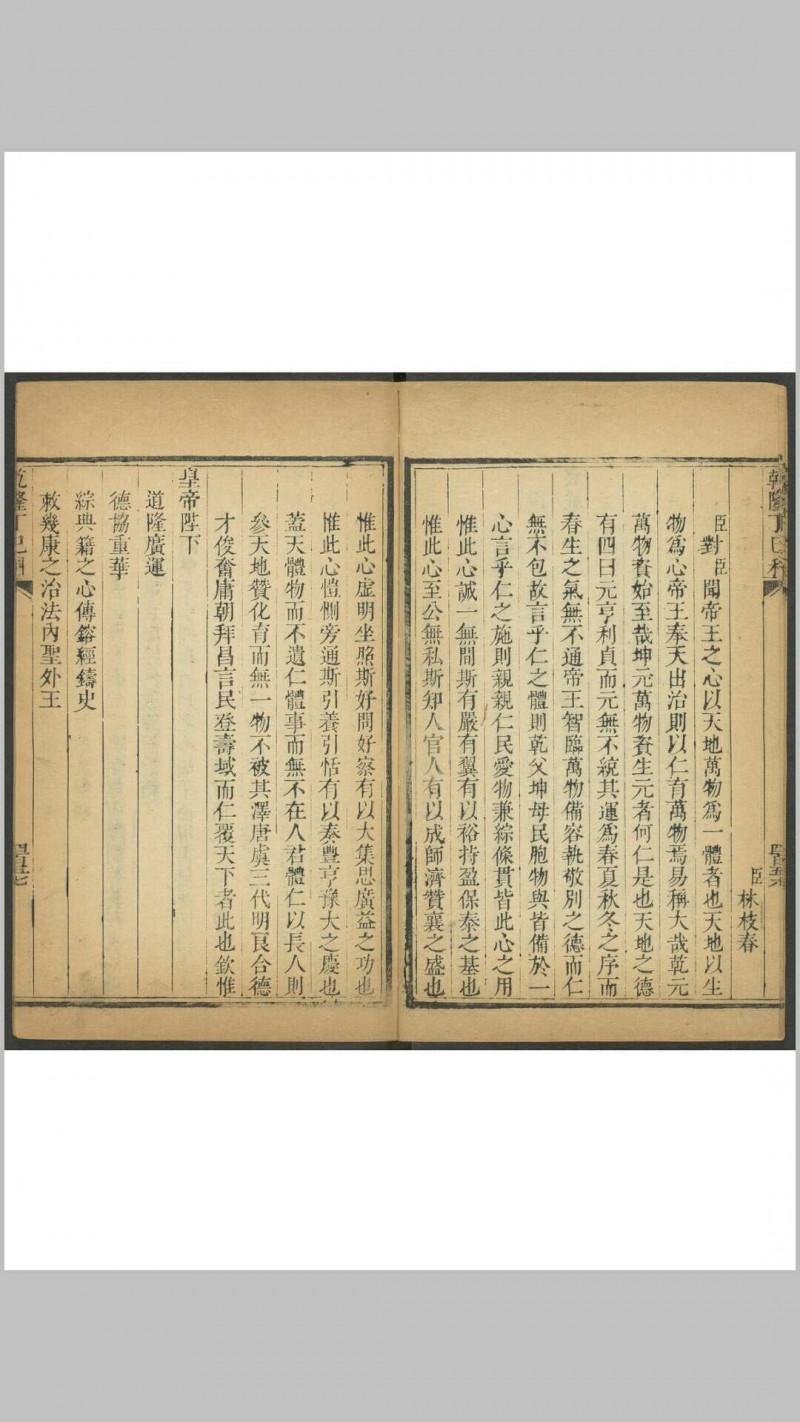 乾隆丁巳科
臣林枝春
臣對臣聞帝王之心以天地萬物爲一體者也天地以生
物爲心帝王奉天出治則以仁育萬物焉易稱大哉乾元
萬物資始至哉坤元萬物資生元者何仁是也天地之德
有四曰元亨利貞而元無不統其運爲春夏秋冬之序而
春生之氣無不通帝王智臨萬物備容執敬別之德而仁
無不包故言乎仁之體則乾父坤母民胞物與皆備於一
心言乎仁之施則親親仁民愛物兼綜條貫皆此心之用
惟此心誠一無間斯有嚴有翼有以裕持盈保泰之基也
惟此心至公無私斯知人官人有以成師濟贊襄之盛也
惟此心虛明坐照斯好問好察有以大集思廣益之功也
惟此心愷惻旁通斯引養引恬有以奏豐亨豫大之慶也
蓋天體物而不遺仁體事而無不在人君體仁以長人則
參天地贊化育而無一物不被其澤唐虞三代明良合德
才俊奮庸朝拜昌言民登壽域而仁覆天下者此也欽惟
皇帝陛下
道隆廣運
德協重華
綜典籍之心傳鎔經鑄史
敕幾康之治法內聖外王
乾隆丁巳科